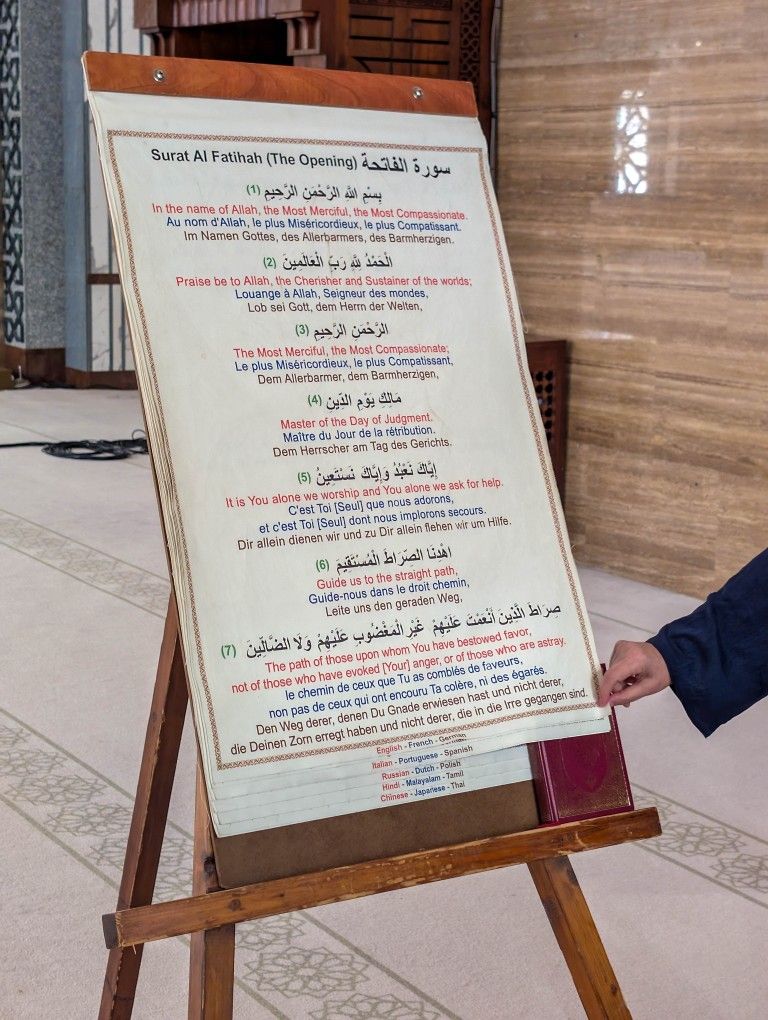 Surat Al Fatihah (The Opening) سورة الفاتحة
(1) بِسْمِ اللَّهِ الرَّحْمَنِ الرَّحِيمِ
In the name of Allah, the Most Merciful, the Most Compassionate.
Au nom d'Allah, le plus Miséricordieux, le plus Compatissant.
Im Namen Gottes, des Allerbarmers, des Barmherzigen.
(2) الْحَمْدُ لِلَّهِ رَبِّ الْعَالَمِينَ
Praise be to Allah, the Cherisher and Sustainer of the worlds;
Louange à Allah, Seigneur des mondes,
Lob sei Gott, dem Herrn der Welten,
(3) الرَّحْمَنِ الرَّحِيمِ
The Most Merciful, the Most Compassionate;
Le plus Miséricordieux, le plus Compatissant,
Dem Allerbarmer, dem Barmherzigen,
(4) مَالِكِ يَوْمِ الدِّينِ
Master of the Day of Judgment.
Maître du Jour de la rétribution.
Dem Herrscher am Tag des Gerichts.
(5) إِيَّاكَ نَعْبُدُ وَإِيَّاكَ نَسْتَعِينُ
It is You alone we worship and You alone we ask for help.
C'est Toi [Seul] que nous adorons,
et c'est Toi [Seul] dont nous implorons secours.
Dir allein dienen wir und zu Dir allein flehen wir um Hilfe.
(6) اهْدِنَا الصِّرَاطَ الْمُسْتَقِيمَ
Guide us to the straight path,
Guide-nous dans le droit chemin,
Leite uns den geraden Weg,
(7) صِرَاطَ الَّذِينَ أَنْعَمْتَ عَلَيْهِمْ غَيْرِ الْمَغْضُوبِ عَلَيْهِمْ وَلَا الضَّالِّينَ
The path of those upon whom You have bestowed favor,
not of those who have evoked [Your] anger, or of those who are astray.
le chemin de ceux que Tu as comblés de faveurs,
non pas de ceux qui ont encouru Ta colère, ni des égarés.
Den Weg derer, denen Du Gnade erwiesen hast und nicht derer,
die Deinen Zorn erregt haben und nicht derer, die in die Irre gegangen sind.
English - French - German
Italian - Portuguese - Spanish
Russian - Dutch - Polish
Hindi - Malayalam - Tamil
Chinese - Japanese - Thai